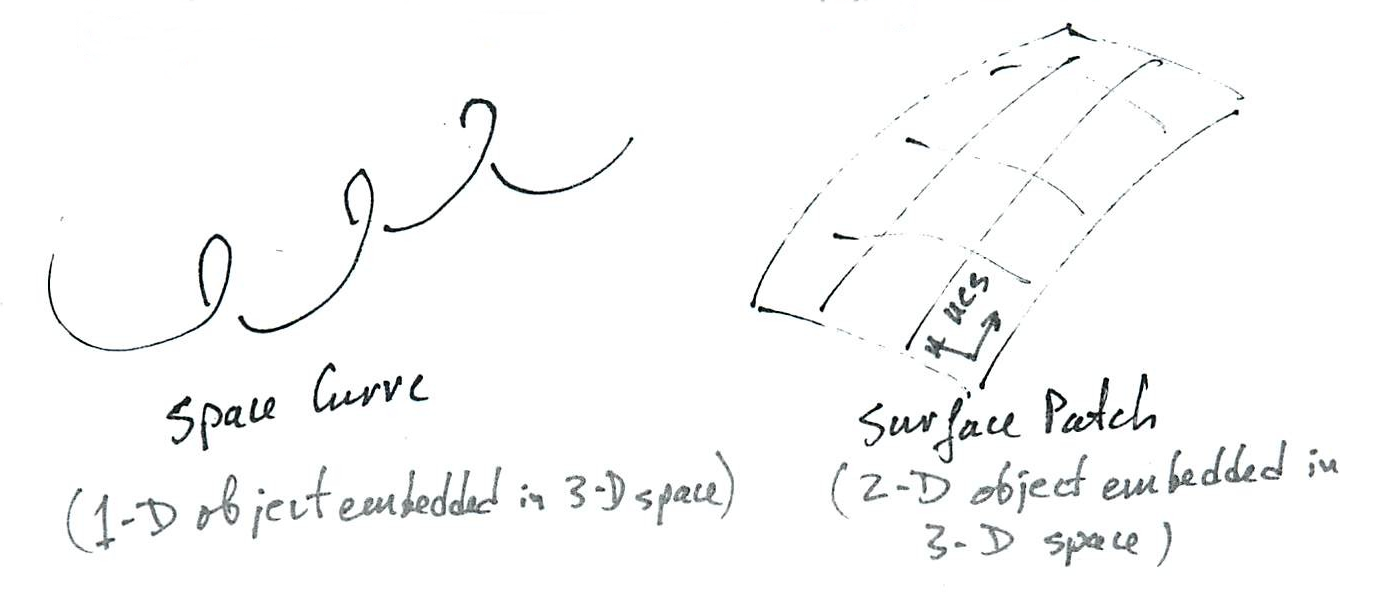 Space Curve
(1-D object embedded in 3-D space)
UCS
Surface Patch
(2-D object embedded in
3-D space)